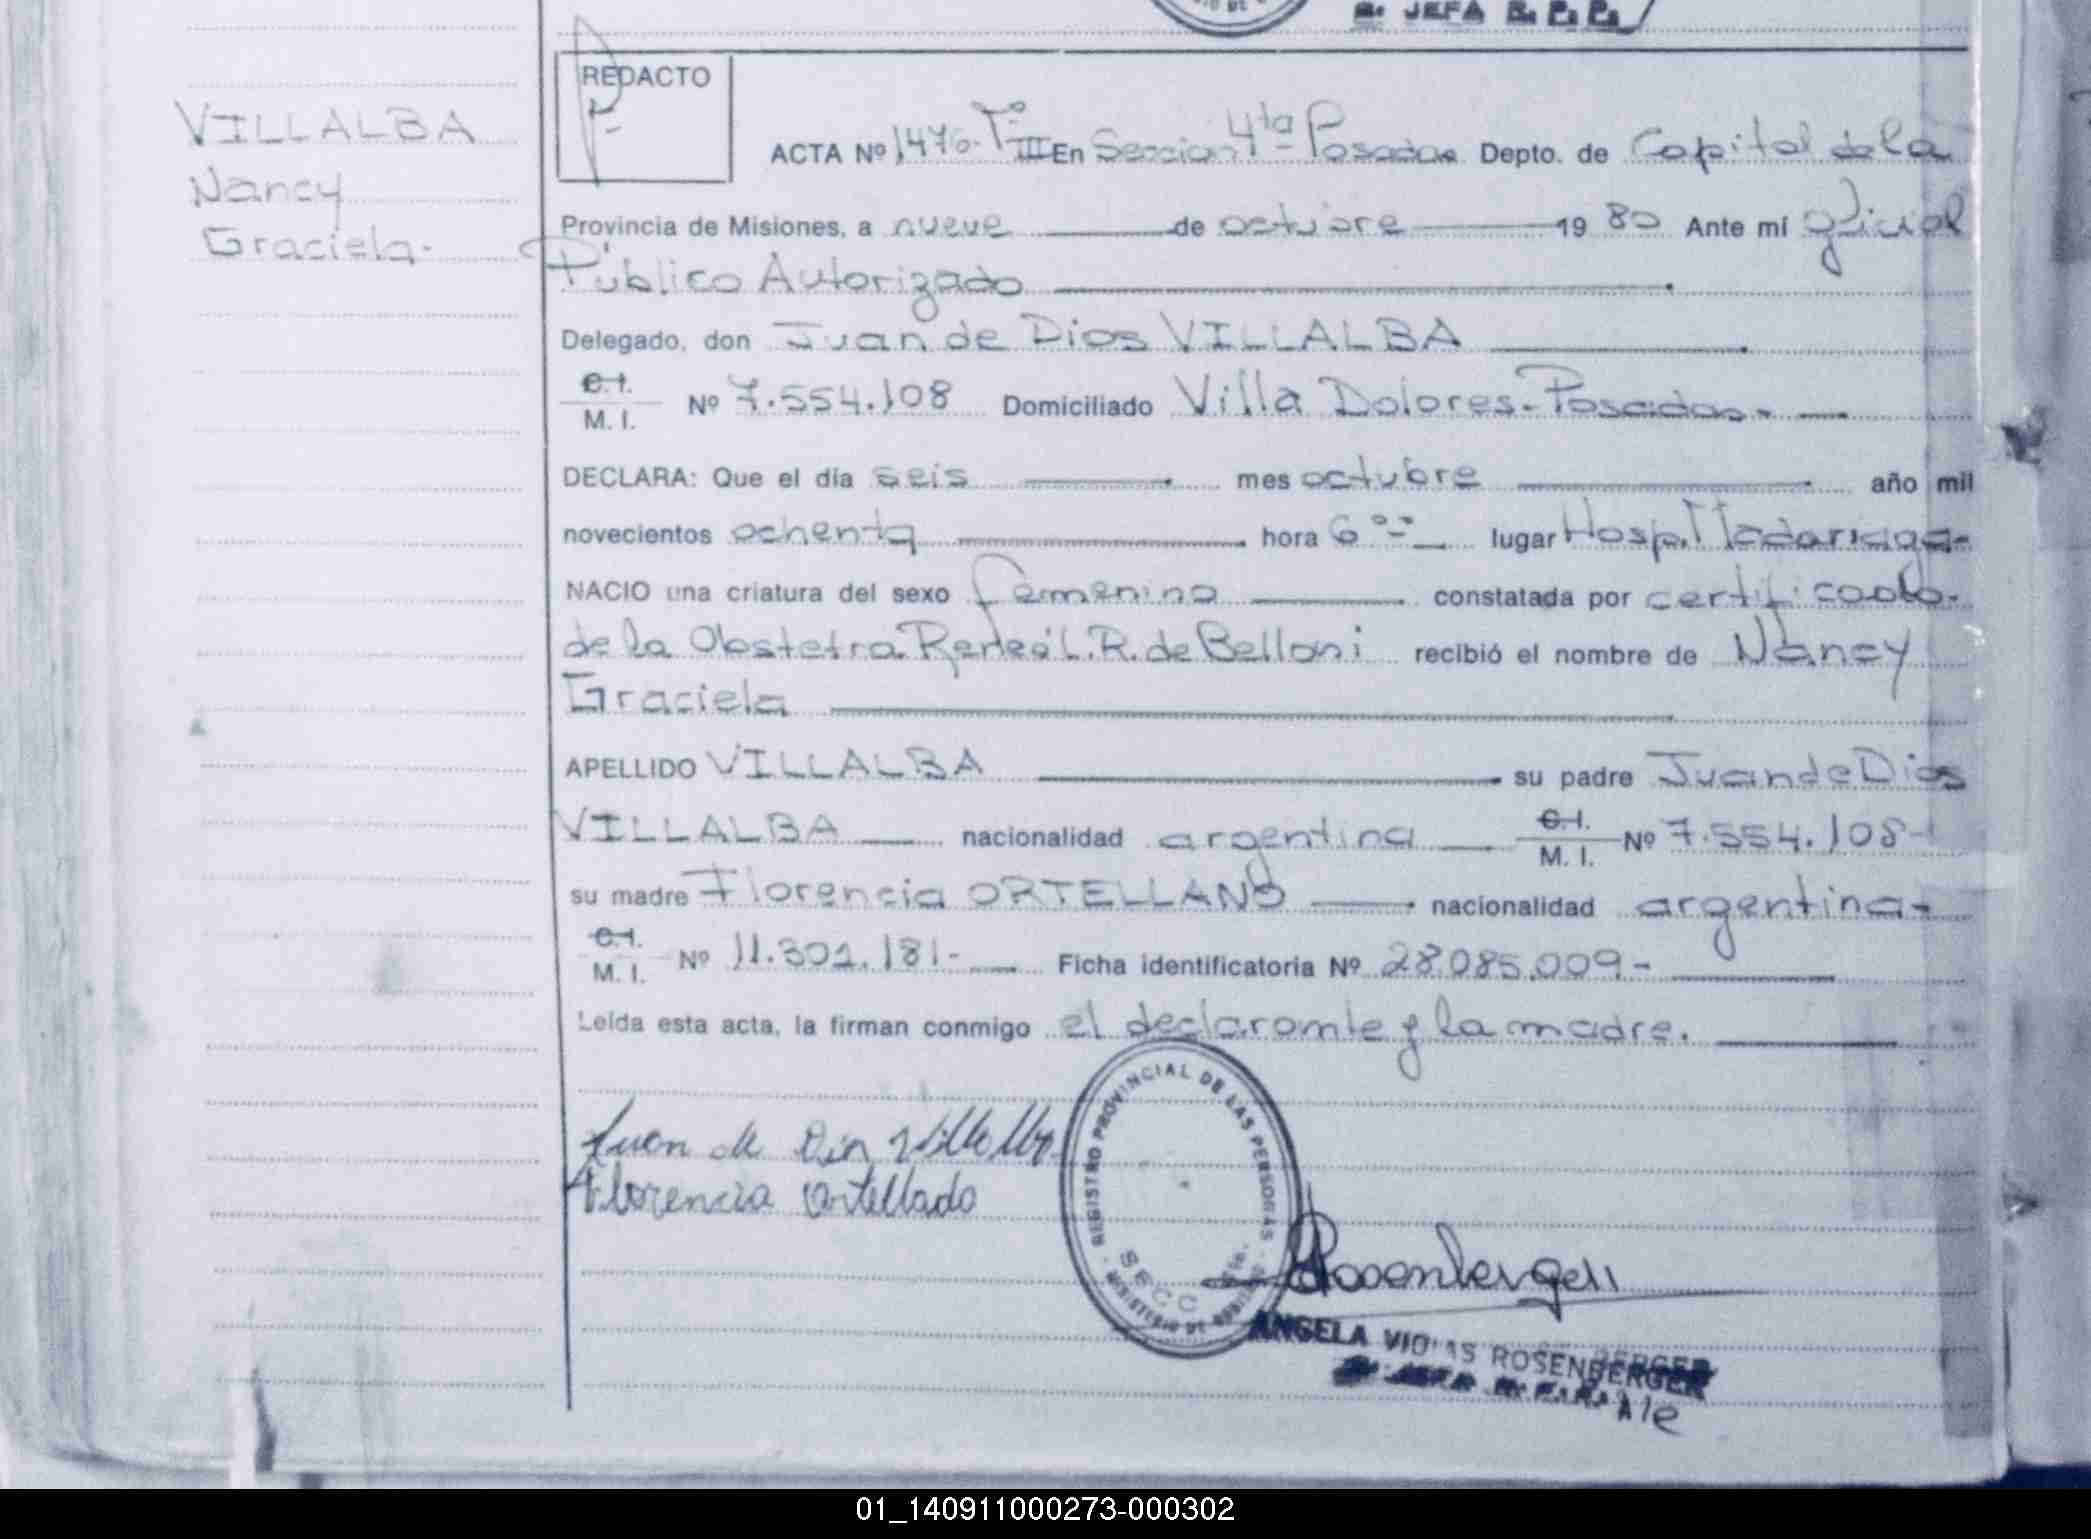 REDACTO
VILLALBA
Nancy
Graciela.
ACTA Nº 1476. Tº III En Seccion 4ta Posadas Depto. de Capital de la
Provincia de Misiones, a nueve de octubre 1980 Ante mí oficial
Público Autorizado
Delegado, don Juan de Dios VILLALBA
C. I.
M. I. Nº 7.554.108 Domiciliado Villa Dolores-Posadas-
DECLARA: Que el día seis mes octubre año mil
novecientos ochenta hora 6 lugar Hosp. Madariaga-
NACIO una criatura del sexo femenino constatada por certificado
de la Obstetra L.R. de Belloni recibió el nombre de Nancy
Graciela
APELLIDO VILLALBA su padre Juan de Dios
VILLALBA nacionalidad argentina C. I.
M. I. Nº 7.554.108-
su madre Florencia ORTELLADO nacionalidad argentina-
C. I.
M. I. Nº 11.301.181- Ficha identificatoria Nº 28.085.009-
Leída esta acta, la firman conmigo el declarante y la madre.
Juan de Dios Villalba
Florencia Ortellado
REGISTRO PROVINCIAL DE LAS PERSONAS
SECC
MINISTERIO DE
ANGELA ROSENBERGER
01_140911000273-000302